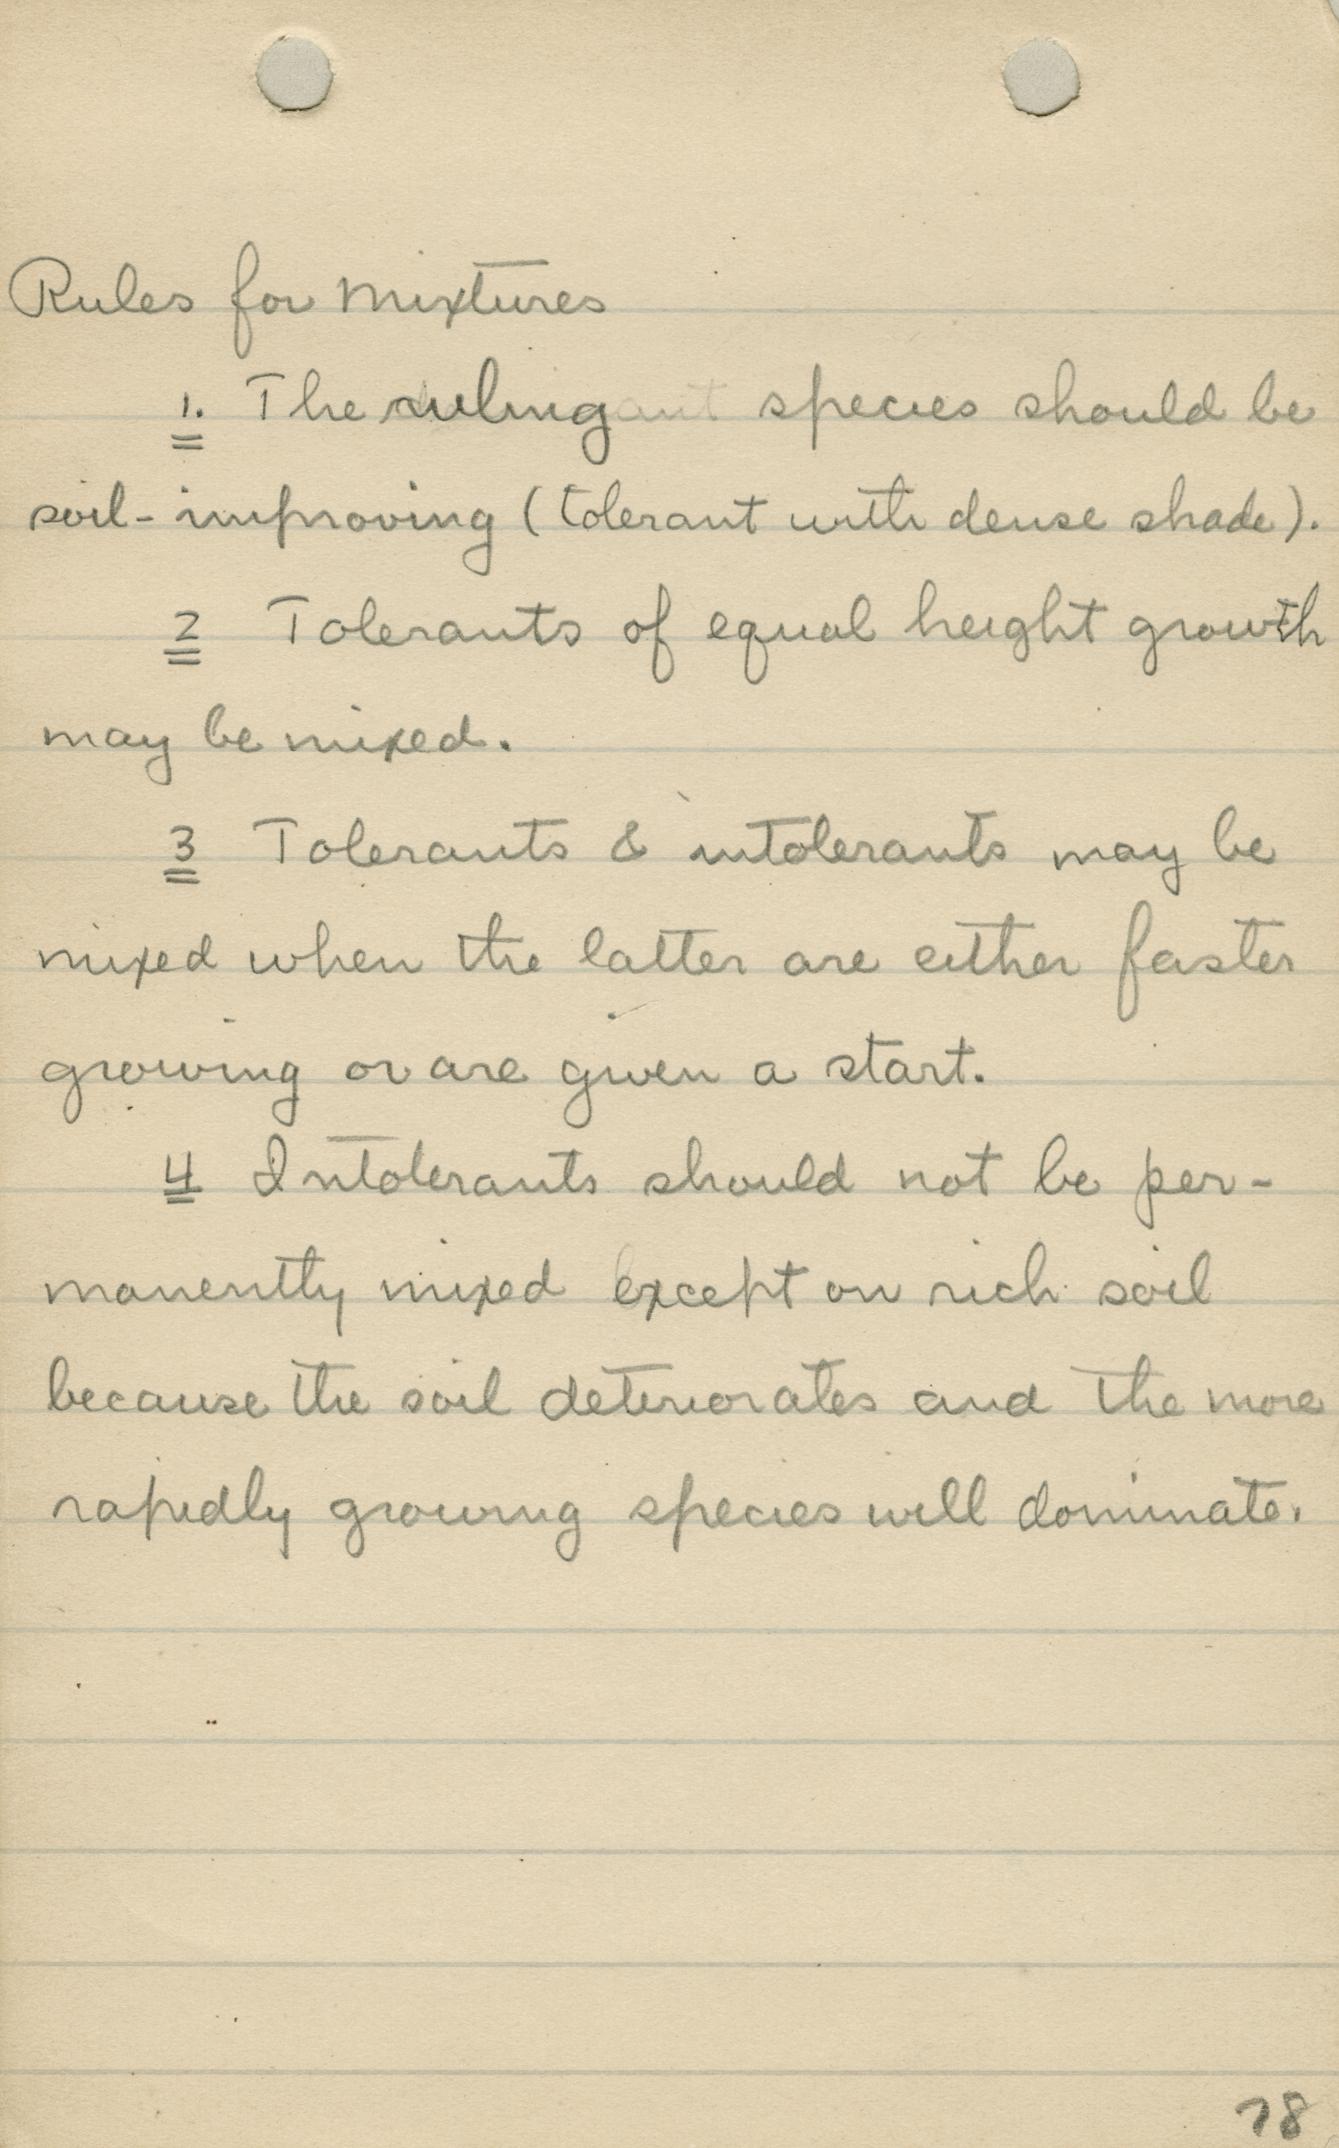 Rules for mixtures
1. The ruling species should be
soil-improving (tolerant with dense shade).
2 Tolerants of equal height growth
may be mixed.
3 Tolerants & intolerants may be
mixed when the latter are either faster
growing or are given a start.
4 Intolerants should not be per-
manently mixed except on rich soil
because the soil deteriorates and the more
rapidly growing species will dominate.
78